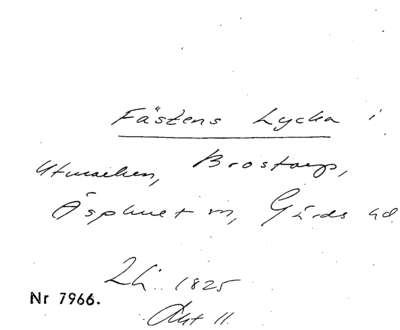 Fästens Lycka i
Utmarken, Brostorp,
Äsphult sn, Gärds hd.
Lh. 1825
Akt 11.
Nr 7966.